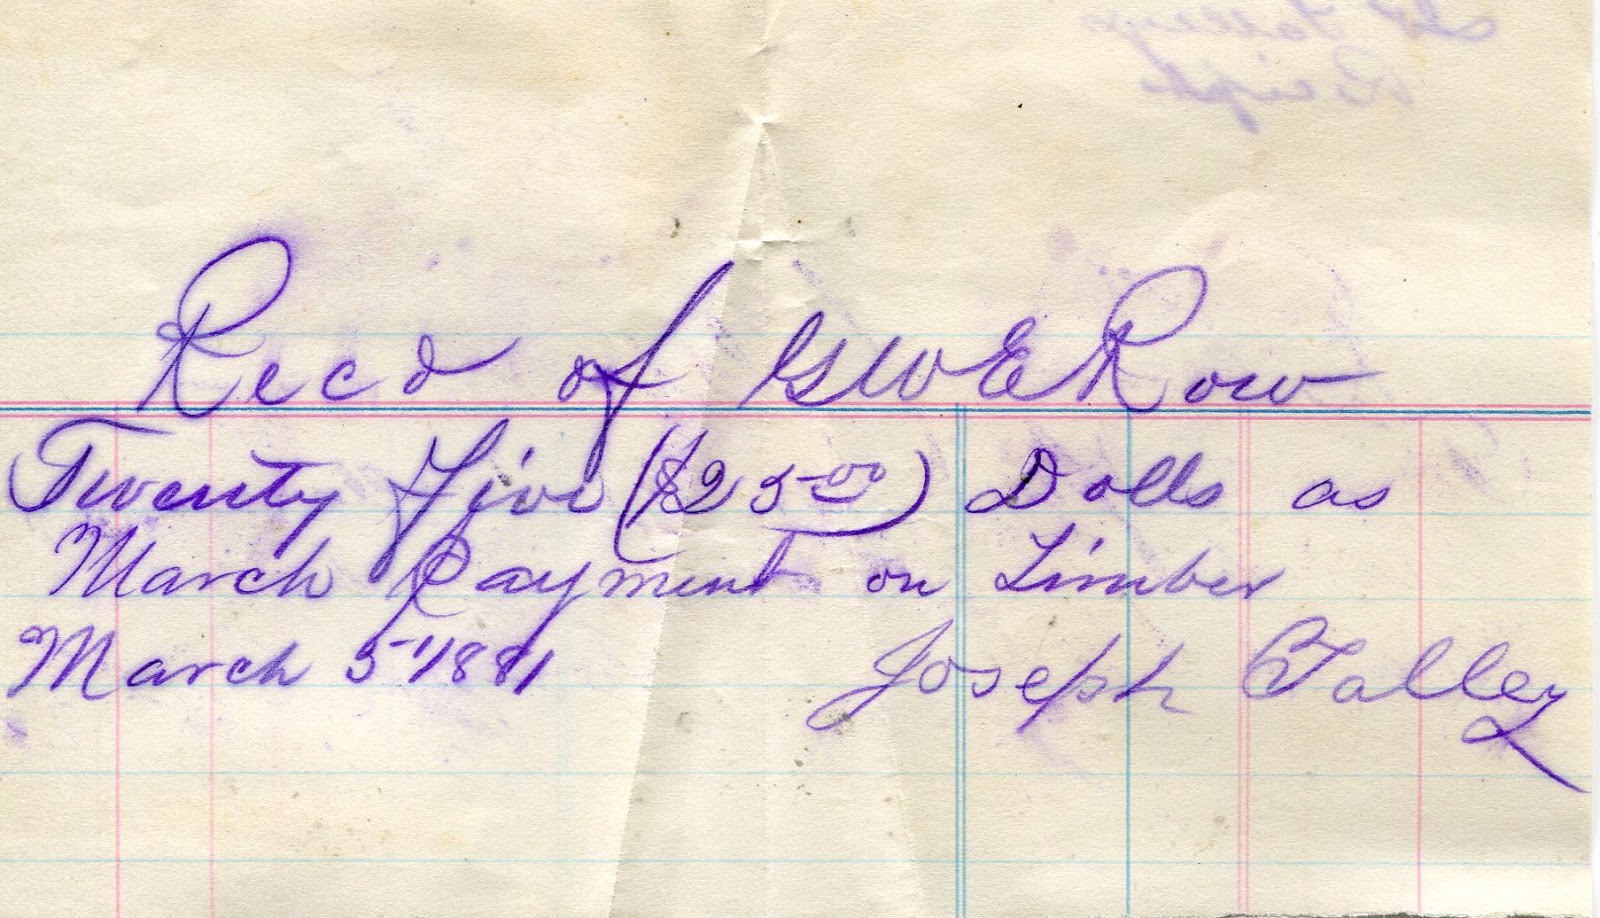 Recd of GWERow
Twenty Five ($25.00) Dolls as
March Payment on Timber
March 5"1881 Joseph Talley